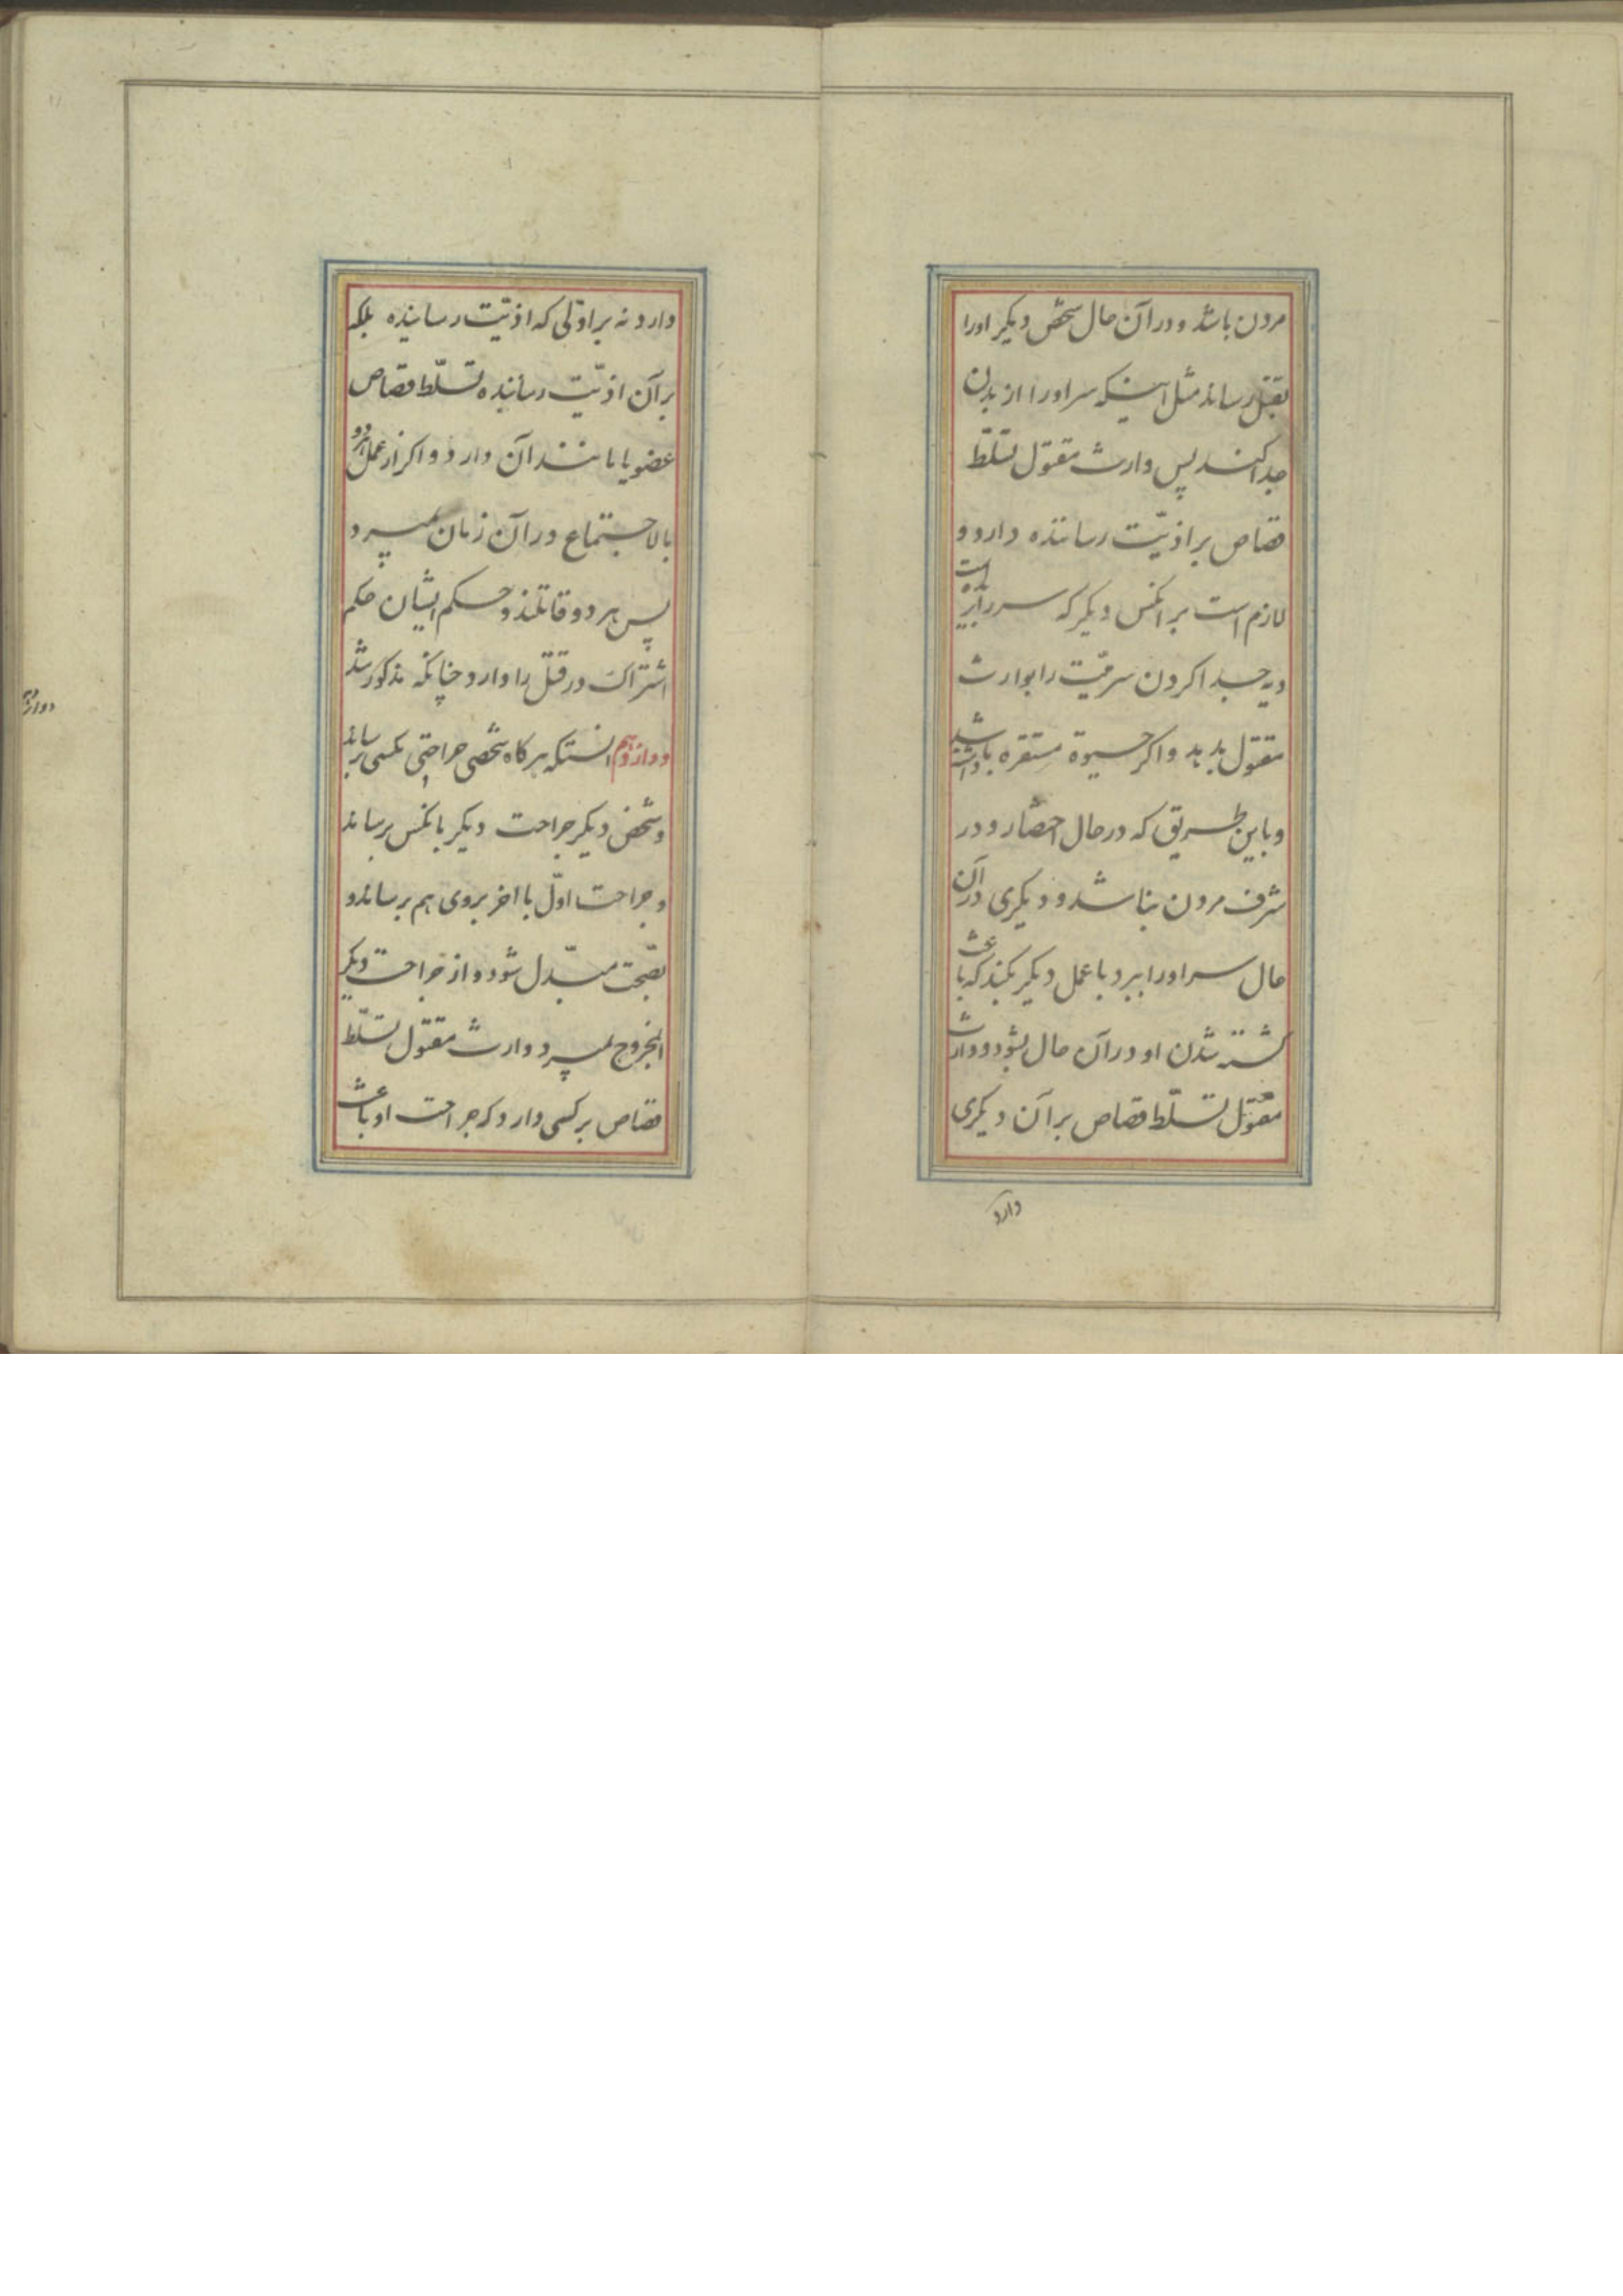 مردن باشد و در آن حال شخص دیکر اورا
بقتل رساند مثل اینکه سر اورا از بدن
جدا کند پس وارث مقتول تسلّط
قصاص بر اذیّت رساننده دارد و
لازم است بر انکس دیکر که سر را بریده است
دیه جدا کردن سر میّت را بوارث
مقتول بدهد و اکر حیوة مستقره داشته باشد
و باین طریق که در حال احتضار و در
شرف مردن نباشد و دیکری در آن
حال سر اورا ببرد یا عمل دیکر بکند که باعث
کشته شدن او در آن حال بشود و وارث
مقتول تسلّط قصاص بر آن دیکری
دارد
دارد نه بر اوّلی که اذیّت رسانیده بلکه
بر آن اذیّت رسانیده تسلّط قصاص
عضو یا مانند آن دارد و اکر از عمل هر دو
بالاجتماع در آن زمان بمیرد
پس هر دو قاتلند و حکم ایشان حکم
اشتراک در قتل را دارد چنانکه مذکور شد
دوازدهم انستکه هرکاه شخصی جراحتی بکسی برساند
و شخص دیکر جراحت دیکر بانکس برساند
و جراحت اوّل با اخر بروی هم برساند و
بصحّت مبدّل شود و از جراحت دیکر
المجروح بمیرد وارث مقتول تسلّط
قصاص بر کسی دارد که جراحت او باعث
دوازدهم